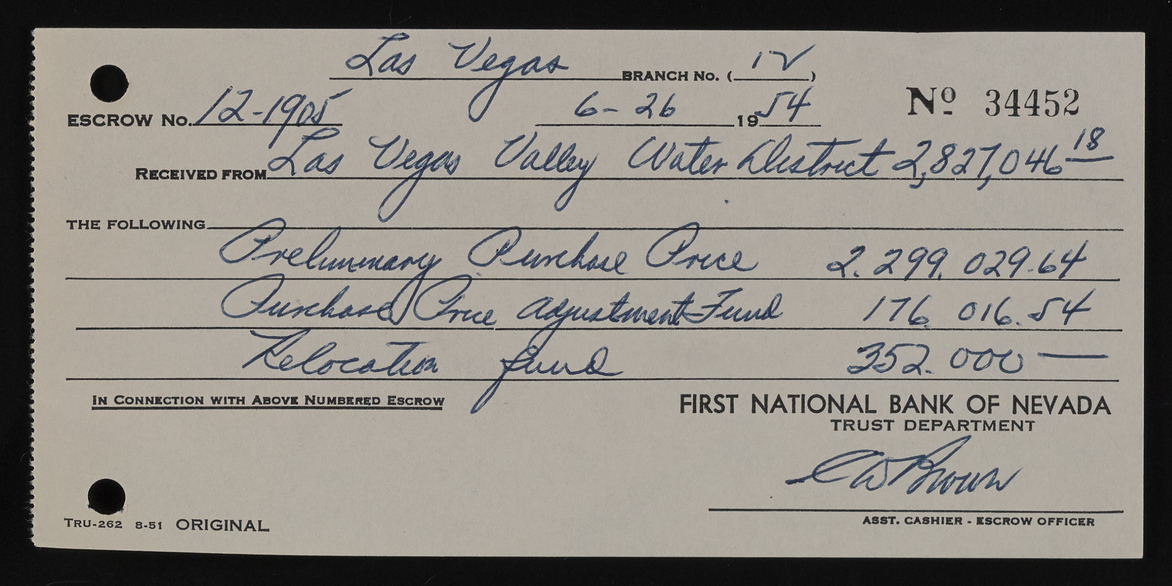 Las Vegas BRANCH No. ( 12 )
ESCROW No. 12-1905 6-26 1954 No 34452
RECEIVED FROM Las Vegas Valley Water District 2,827,046 18
THE FOLLOWING
Preliminary Purchase Price 2.299.029.64
Purchase Price Adjustment Fund 176 016.54
Relocation fund 352.000 —
IN CONNECTION WITH ABOVE NUMBERED ESCROW
FIRST NATIONAL BANK OF NEVADA
TRUST DEPARTMENT
CW Brown
TRU-262 8-51 ORIGINAL
ASST. CASHIER - ESCROW OFFICER